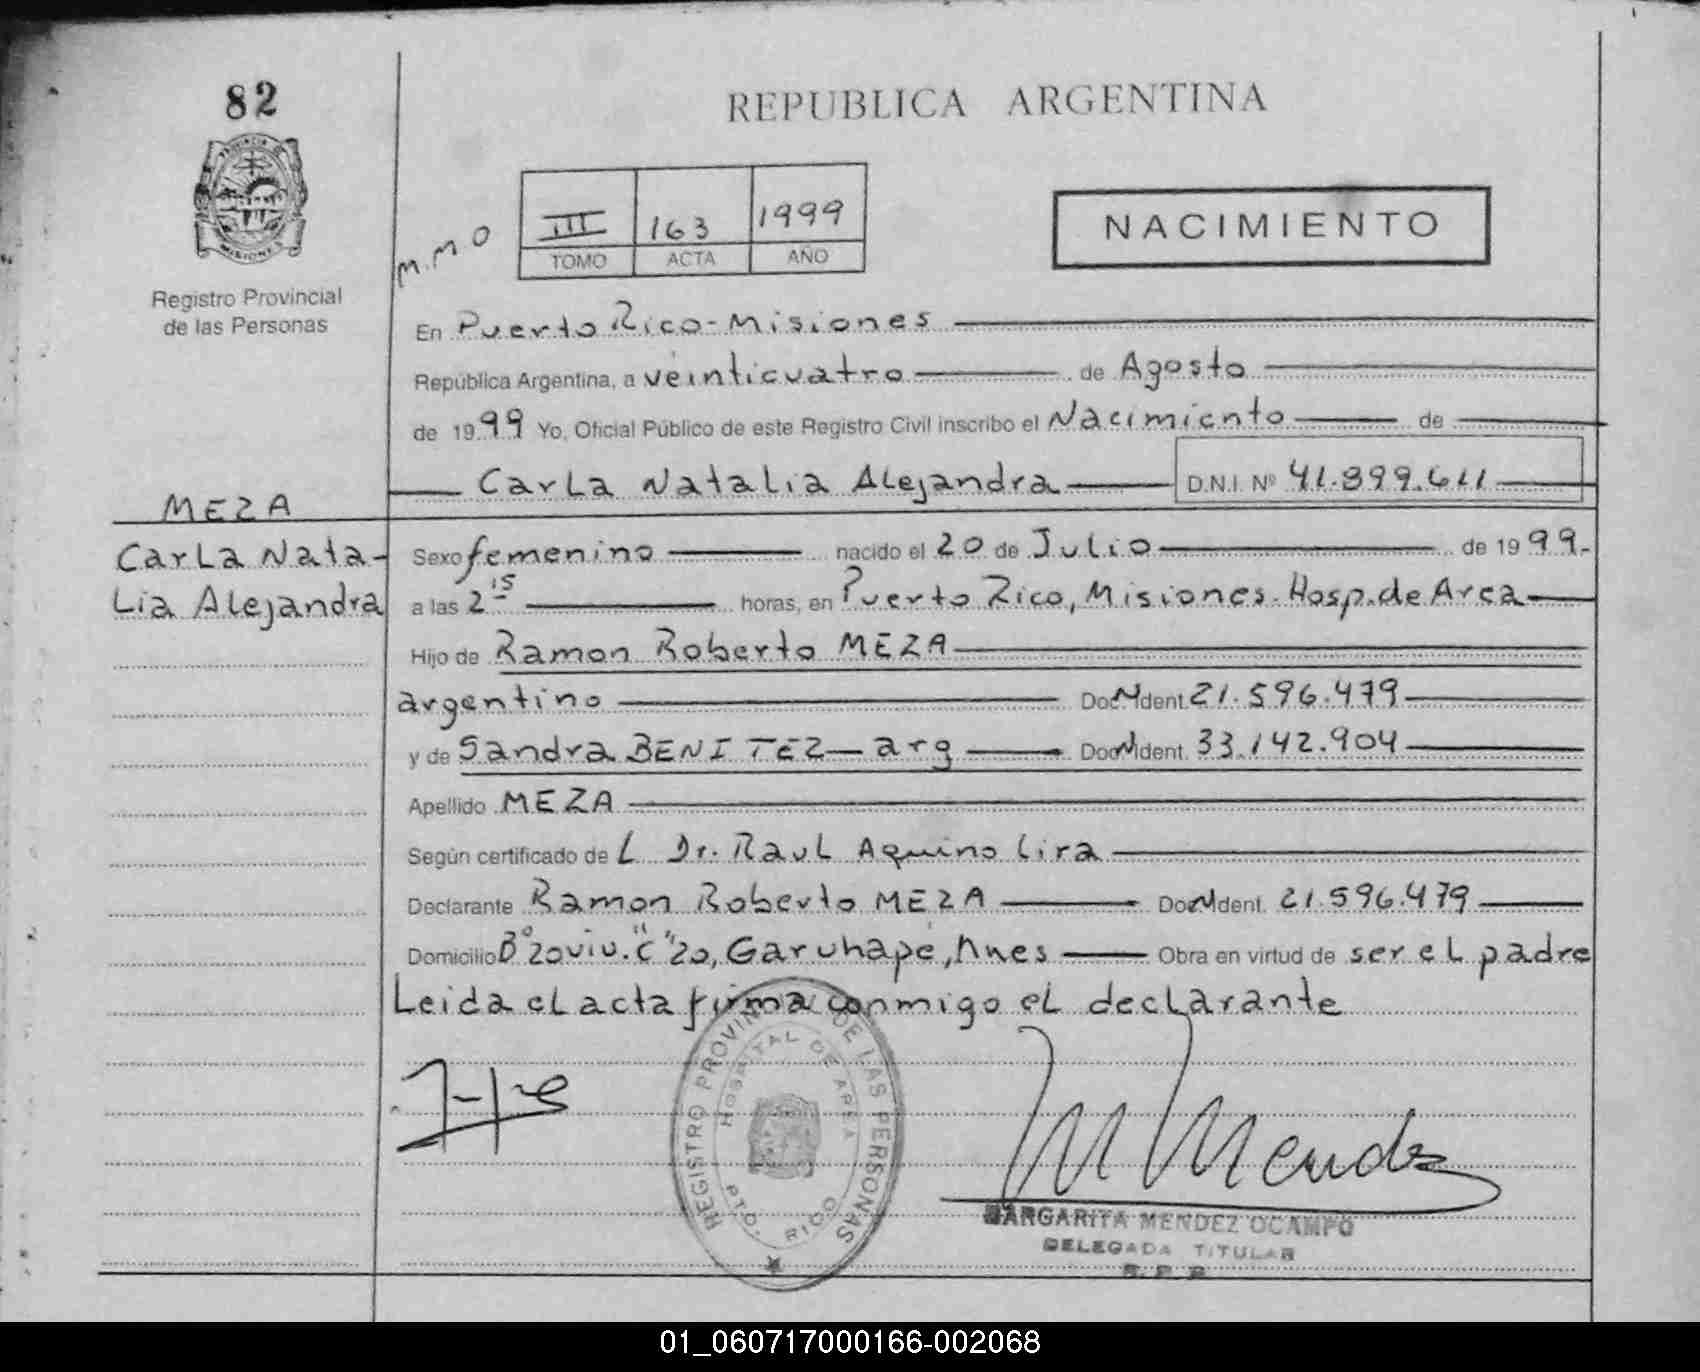 82
REPUBLICA ARGENTINA
PROVINCIA DE
MISIONES
Registro Provincial
de las Personas
M.M.O
III 163 1999
TOMO ACTA AÑO
NACIMIENTO
En Puerto Rico-Misiones
República Argentina, a veinticuatro de Agosto
de 1999 Yo, Oficial Público de este Registro Civil inscribo el Nacimiento de
Carla Natalia Alejandra D.N.I. Nº 41.899.611
MEZA
Carla Nata-
Lia Alejandra
Sexo femenino nacido el 20 de Julio de 1999.-
a las 2 15 horas, en Puerto Rico, Misiones. Hosp. de Area
Hijo de Ramon Roberto MEZA
argentino Doc. Ident. 21.596.479
y de Sandra BENITEZ arg Doc. Ident. 33.142.904
Apellido MEZA
Según certificado de L Dr. Raul Aquino Lira
Declarante Ramon Roberto MEZA Doc. Ident. 21.596.479
Domicilio Bº 20 viv. "C" 20, Garuhapé, Mnes Obra en virtud de ser el padre
Leida el acta firma conmigo el declarante
REGISTRO PROVINCIAL DE LAS PERSONAS
HOSPITAL DE AREA
PTO. RICO
M Mendez
MARGARITA MENDEZ OCAMPO
DELEGADA TITULAR
R. P. P.
01_060717000166-002068